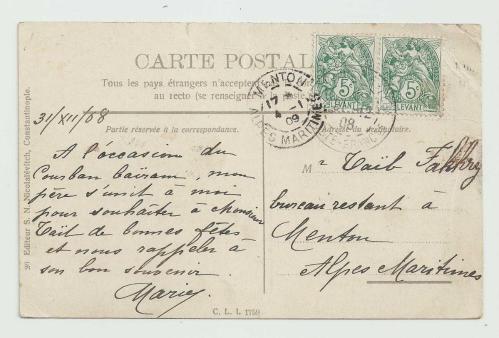 CARTE POSTALE
Tous les pays étrangers n'acceptent
au recto (se renseigner
Partie réservée à la correspondance.
Adresse du destinataire.
31/XII/08
A l'occasion du
Courban baïram, mon
père s'unit à moi
pour souhaiter à Monsieur
Taïb de bonnes fêtes
et nous rappeler à
son bon souvenir
Marie
Mr Taïb Fakhry
bureau restant à
Menton
Alpes Maritimes
5c 5c
LEVANT LEVANT
MENTON
17
4 -1
09
ALPES MARITIMES
08
Editeur S. N. Nicolaïévitch, Constantinople.
C. L. I. 1759